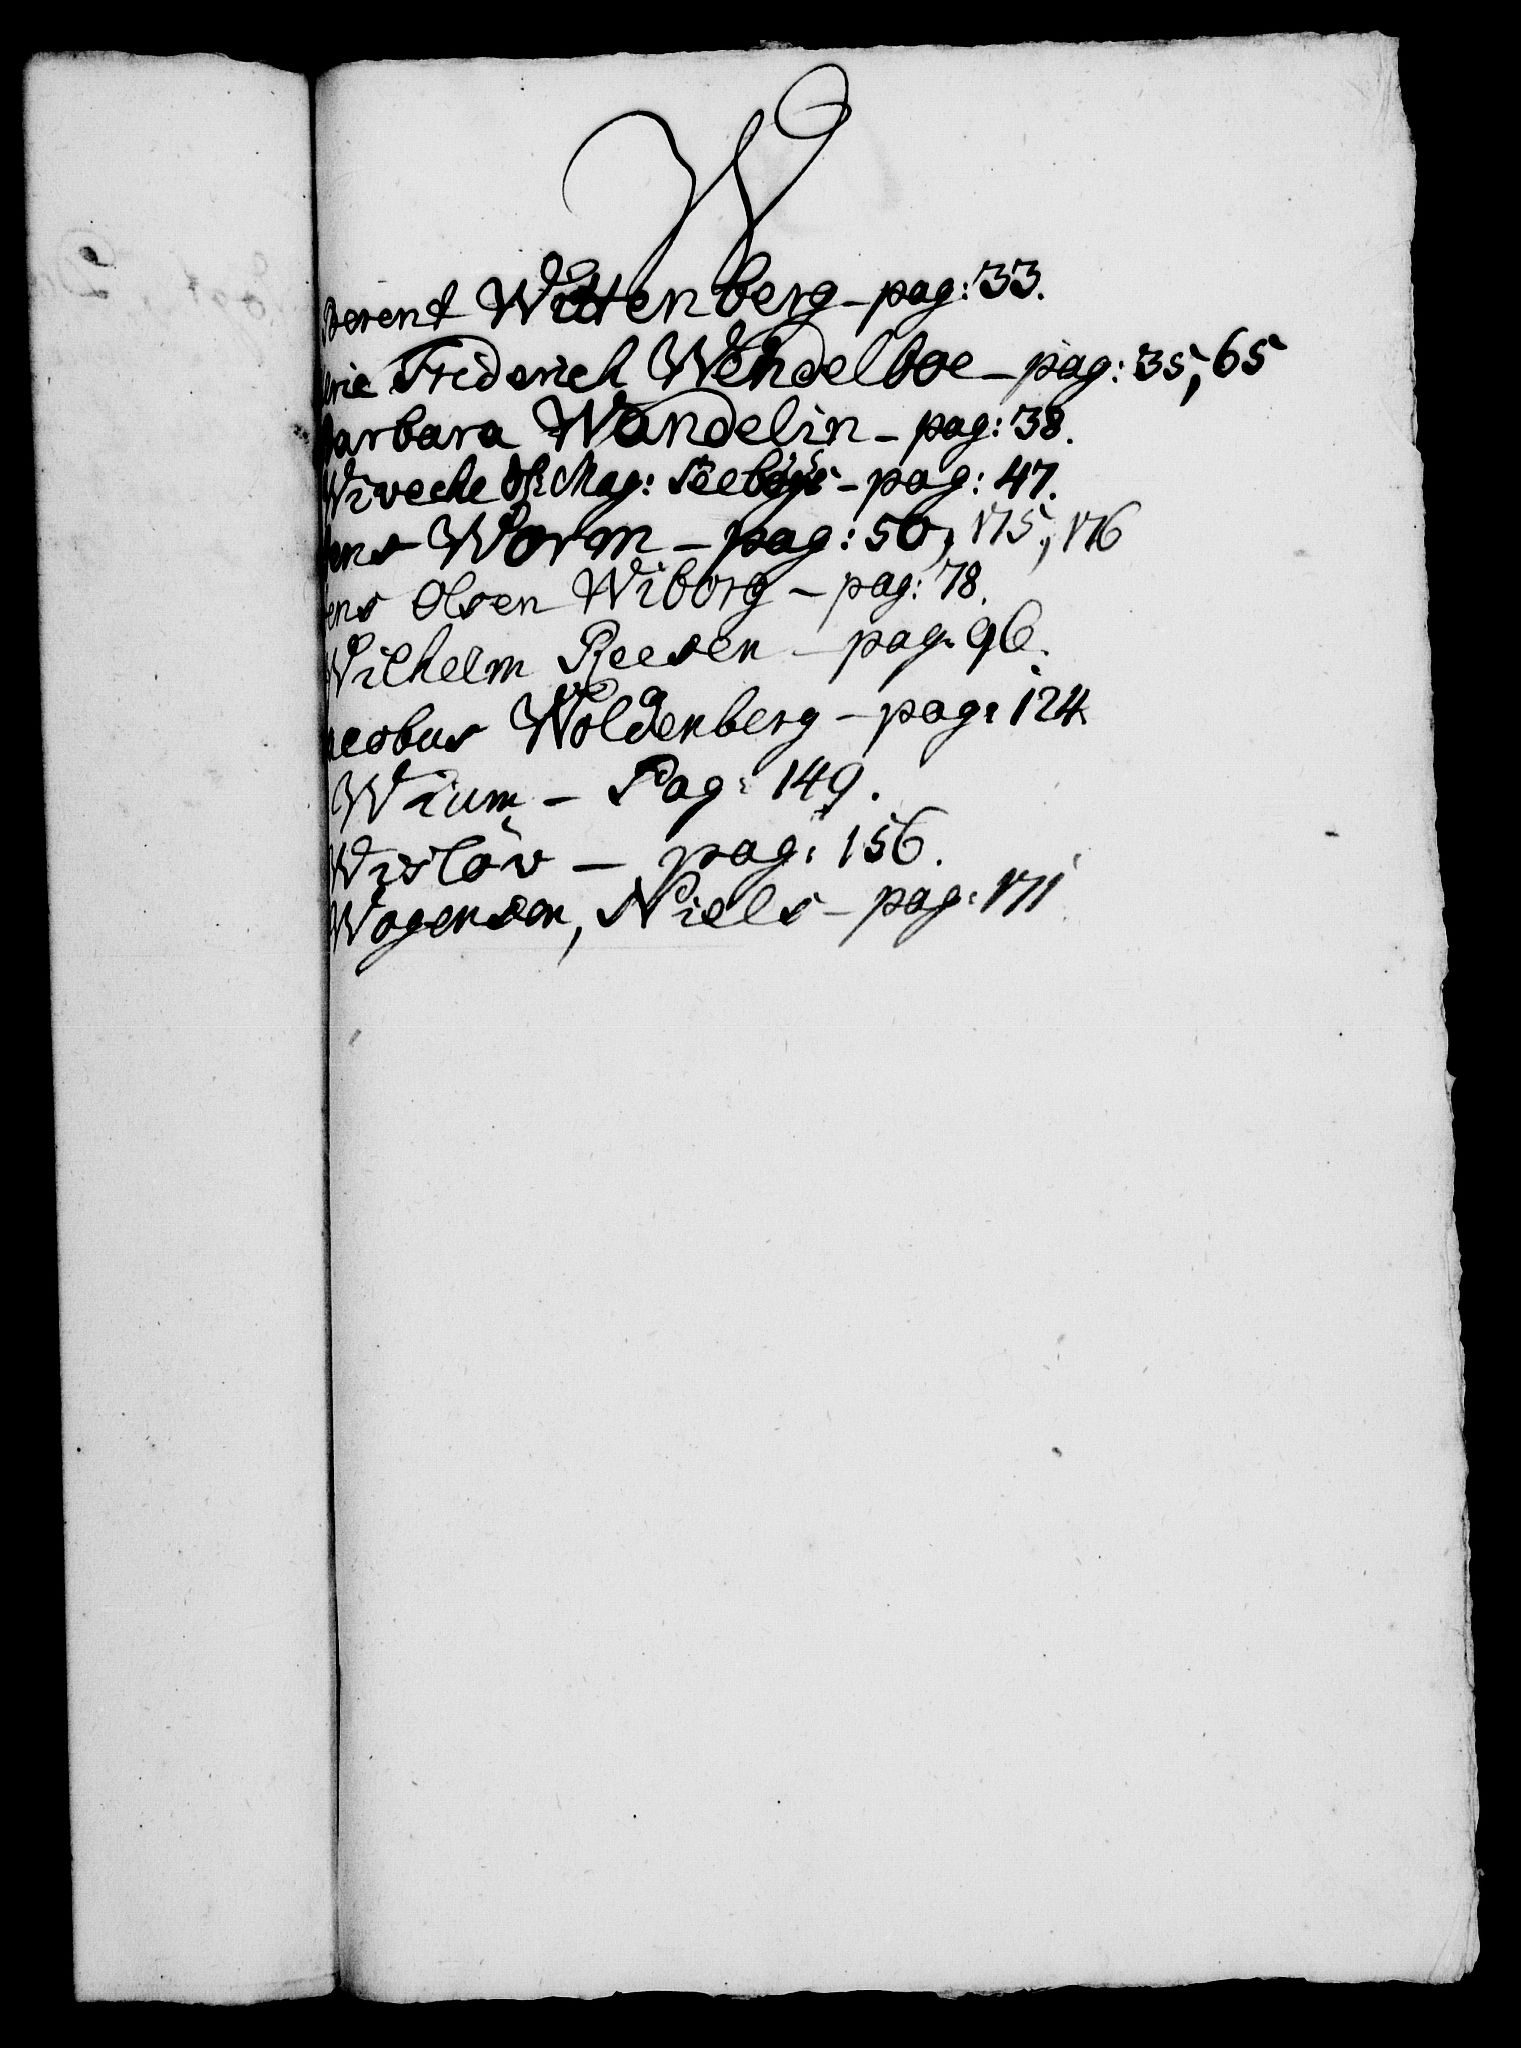 W
Berent Wittenberg - pag: 33.
Friderich Wendelboe - pag: 35, 65
Barbara Wandelin - pag: 38.
Wiveche Mag: - pag: 47.
Jens Worm - pag: 50, 175, 176
Jens Olsen Wiborg - pag: 78.
Wilhelm Reesen - pag: 96.
Jacobus Woldenberg - pag: 124
Wium - Pag: 149.
Wislöv - pag: 156.
Wogensen, Niels - pag: 171